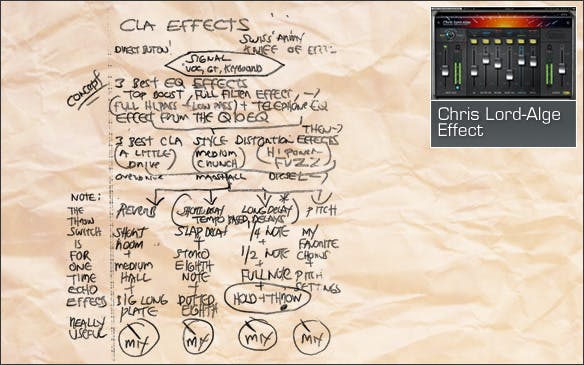 CLA EFFECTS
DIRECT BUTTON!
SWISS ARMY
KNIFE OF
SIGNAL
VOC, GT, KEYBOARD
CONCEPT
3 BEST EQ EFFECTS
TOP BOOST / FULL FILTER EFFECT,
(FULL HI PASS - LOW PASS) + TELEPHONE EQ
EFFECT FROM THE Q10 EQ
THEN
3 BEST CLA STYLE DISTORTION EFFECTS
A LITTLE DRIVE
MEDIUM CRUNCH
HI POWER FUZZ
OVERDRIVE
MARSHALL
DIESEL
NOTE:
THE
THROW
SWITCH
IS
FOR
ONE
TIME
ECHO
EFFECTS
REALLY
USEFUL
REVERB
SHORT
ROOM
+
MEDIUM
HALL
+
BIG LONG
PLATE
MIX
SHORT DELAY
LONG DELAY *
TEMPO BASED DELAYS
SLAP DELAY
+
STEREO
EIGHTH
NOTE
+
DOTTED
EIGHTH
MIX
1/4 NOTE
+
1/2 NOTE
+
FULL NOTE
+
HOLD + THROW
MIX
PITCH
MY
FAVORITE
CHORUS
+
PITCH
SETTINGS
MIX
Chris Lord-Alge
Effect